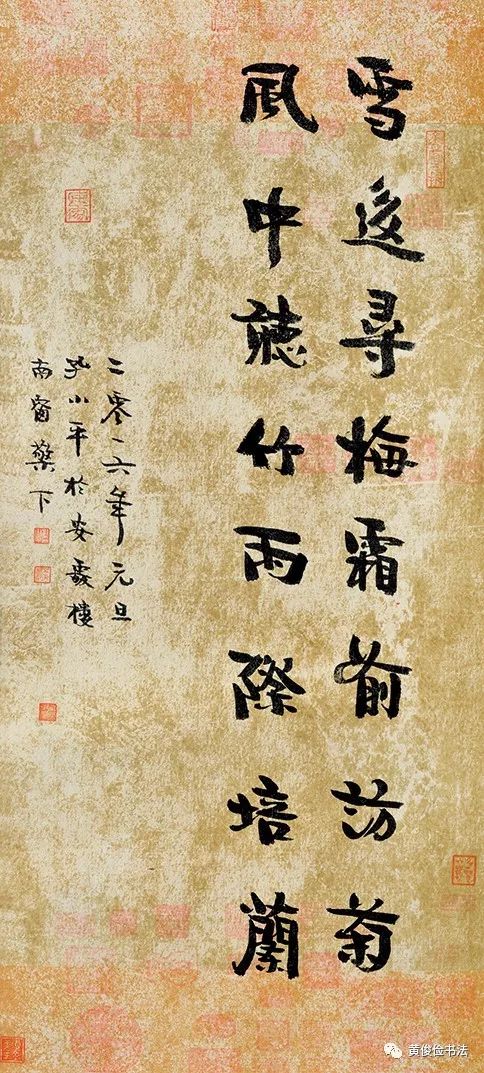 雪後尋梅霜前訪菊
風中聽竹雨際培蘭
二零一六年元旦
孔小平於安處樓
南窗藥下
黄俊俭书法